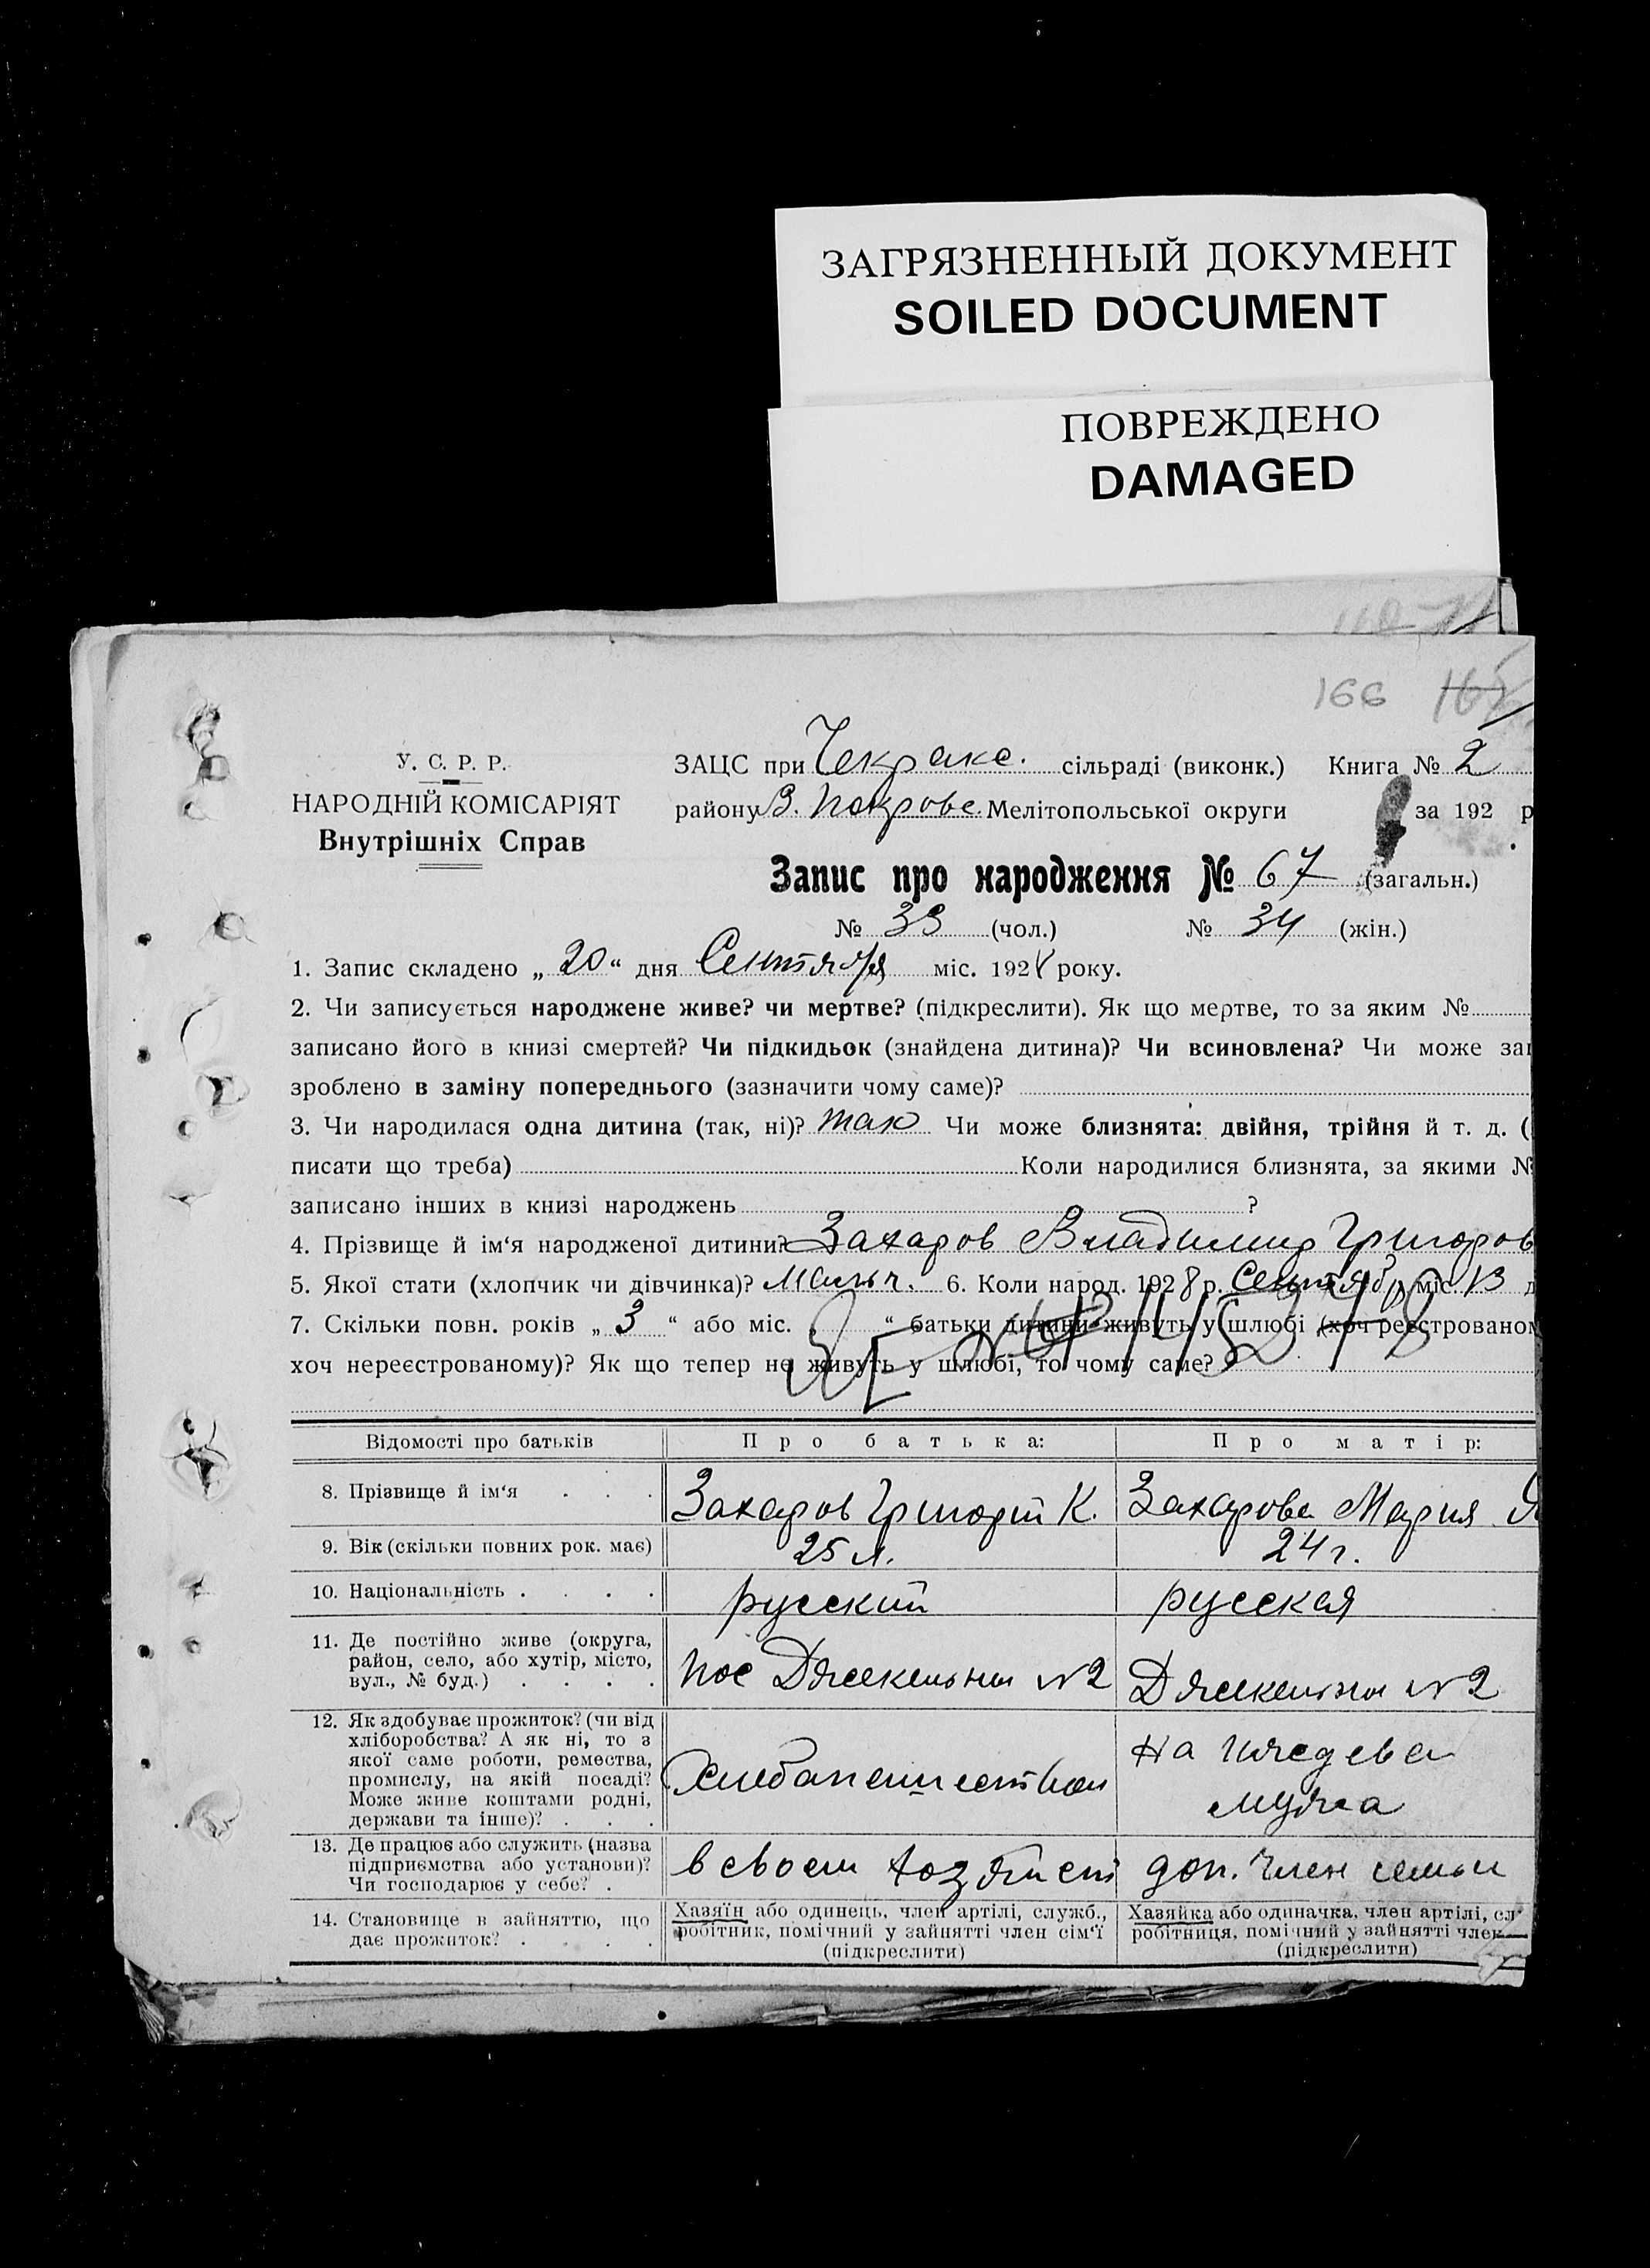 ЗАГРЯЗНЕННЫЙ ДОКУМЕНТ
SOILED DOCUMENT
ПОВРЕЖДЕНО
DAMAGED
166
У. С. Р. Р.
НАРОДНІЙ КОМІСАРІЯТ
Внутрішніх Справ
ЗАЦС при Чекракс. сільраді (виконк.) Книга № 2
району В. Покровс. Мелітопольської округи за 192 р
Запис про народження № 67 (загальн.)
№ 33 (чол.) № 34 (жін.)
1. Запис складено „ 20 “ дня Сентября міс. 1928 року.
2. Чи записується народжене живе? чи мертве? (підкреслити). Як що мертве, то за яким №
записано його в книзі смертей? Чи підкидьок (знайдена дитина)? Чи всиновлена? Чи може за
зроблено в заміну попереднього (зазначити чому саме)?
3. Чи народилася одна дитина (так, ні)? так Чи може близнята: двійня, трійня й т. д. (
писати що треба) Коли народилися близнята, за якими №
записано інших в книзі народжень ?
4. Прізвище й ім‘я народженої дитини? Захаров Владимир Григоров
5. Якої стати (хлопчик чи дівчинка)? Мальч. 6. Коли народ. 1928 р. Сентябр міс. 13 д
7. Скільки повн. років „ 3 “ або міс. „ “ батьки дитини живуть у шлюбі (хоч реєстрованом
хоч нереєстрованому)? Як що тепер не живуть у шлюбі, то чому саме?
Відомості про батьків
Про батька:
Про матір:
8. Прізвище й ім‘я . . .
Захаров Григорій К.
Захарова Мария Я
9. Вік (скільки повних рок. має)
25 л.
24 г.
10. Національність . . . .
русский
русская
11. Де постійно живе (округа,
район, село, або хутір, місто,
вул., № буд.) . . . .
пос №2
№2
12. Як здобуває прожиток? (чи від
хліборобства? А як ні, то з
якої саме роботи, ремества,
промислу, на якій посаді?
Може живе коштами родні,
держави та інше)? . . .
Хлебопашеством
На
мужа
13. Де працює або служить (назва
підприємства або установи)?
Чи господарює у себе? .
в своем хозяйст
доп. член семьи
14. Становище в зайняттю, що
дає прожиток? . . . .
Хазяїн або одинець, член артілі, служб.,
робітник, помічний у зайнятті член сім‘ї
(підкреслити)
Хазяйка або одиначка, член артілі, сл
робітниця, помічний у зайнятті член
(підкреслити)